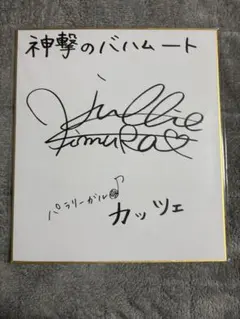 神撃のバハムート
Jullie
Kimura
パラリーガル
カッツェ